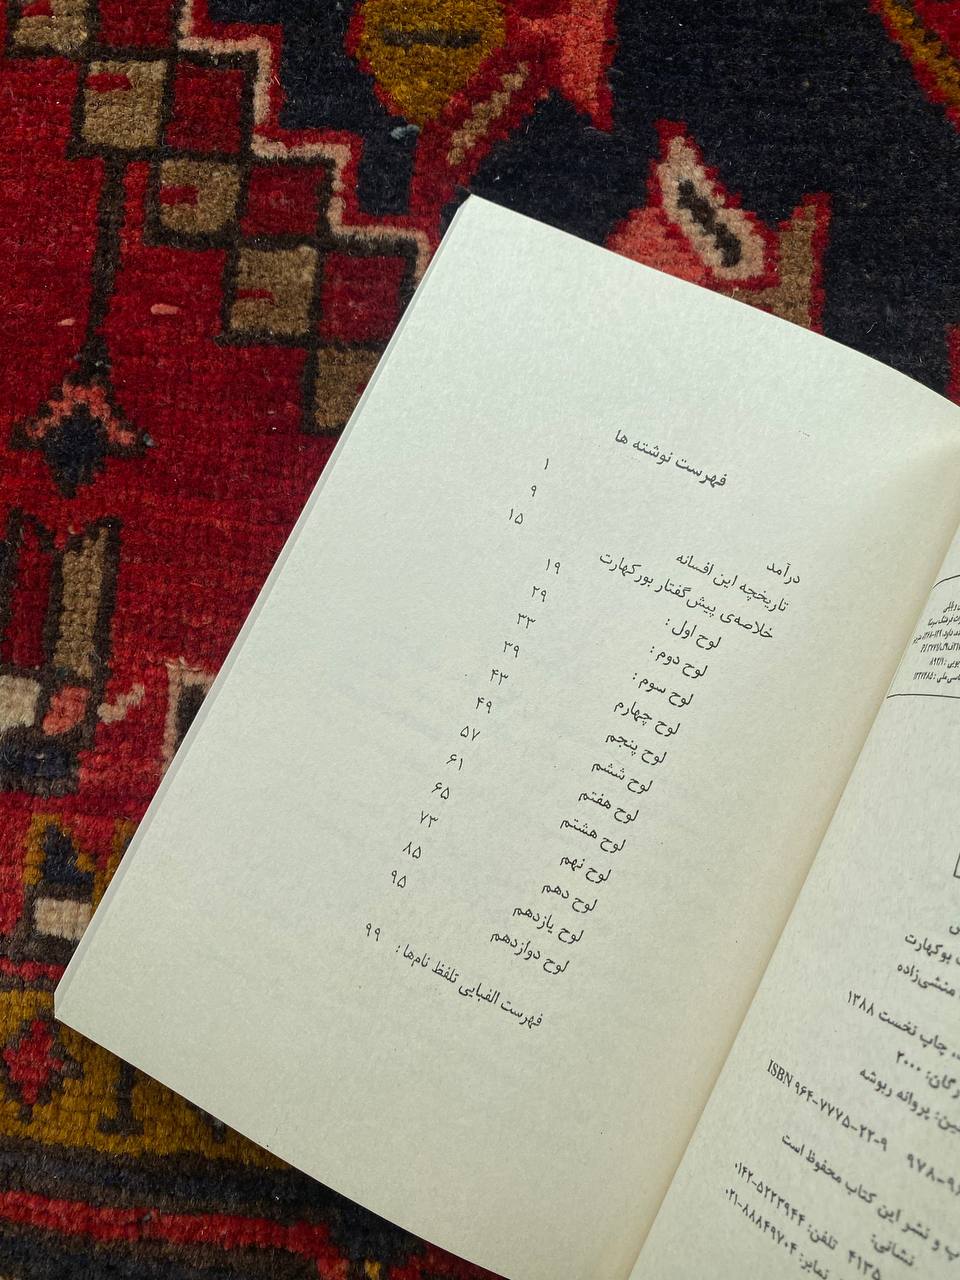 بوکهارت
منشی‌زاده
چاپ نخست ۱۳۸۸
۲۰۰۰
پروانه ریوشه
ISBN ۹۶۴-۷۷۷۵-۲۲-۹
و نشر این کتاب محفوظ است
نشانی:
۴۱۳۵ تلفن: ۵۲۲۳۹۴۴-۰۱۴۲
نمابر: ۸۸۸۴۹۷۰۴-۰۲۱
فهرست نوشته ها
درآمد ۱
تاریخچه این افسانه ۹
خلاصه‌ی پیش‌گفتار بورکهارت ۱۵
لوح اول : ۱۹
لوح دوم : ۲۹
لوح سوم : ۳۳
لوح چهارم ۳۹
لوح پنجم ۴۳
لوح ششم ۴۹
لوح هفتم ۵۷
لوح هشتم ۶۱
لوح نهم ۶۵
لوح دهم ۷۳
لوح یازدهم ۸۵
لوح دوازدهم ۹۵
فهرست الفبایی تلفظ نام‌ها : ۹۹